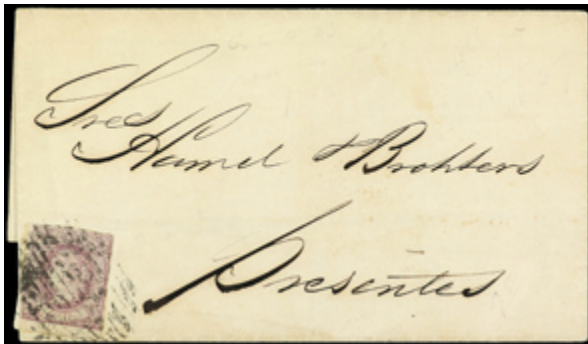 Sres
Hamel & Brohters
Presentes